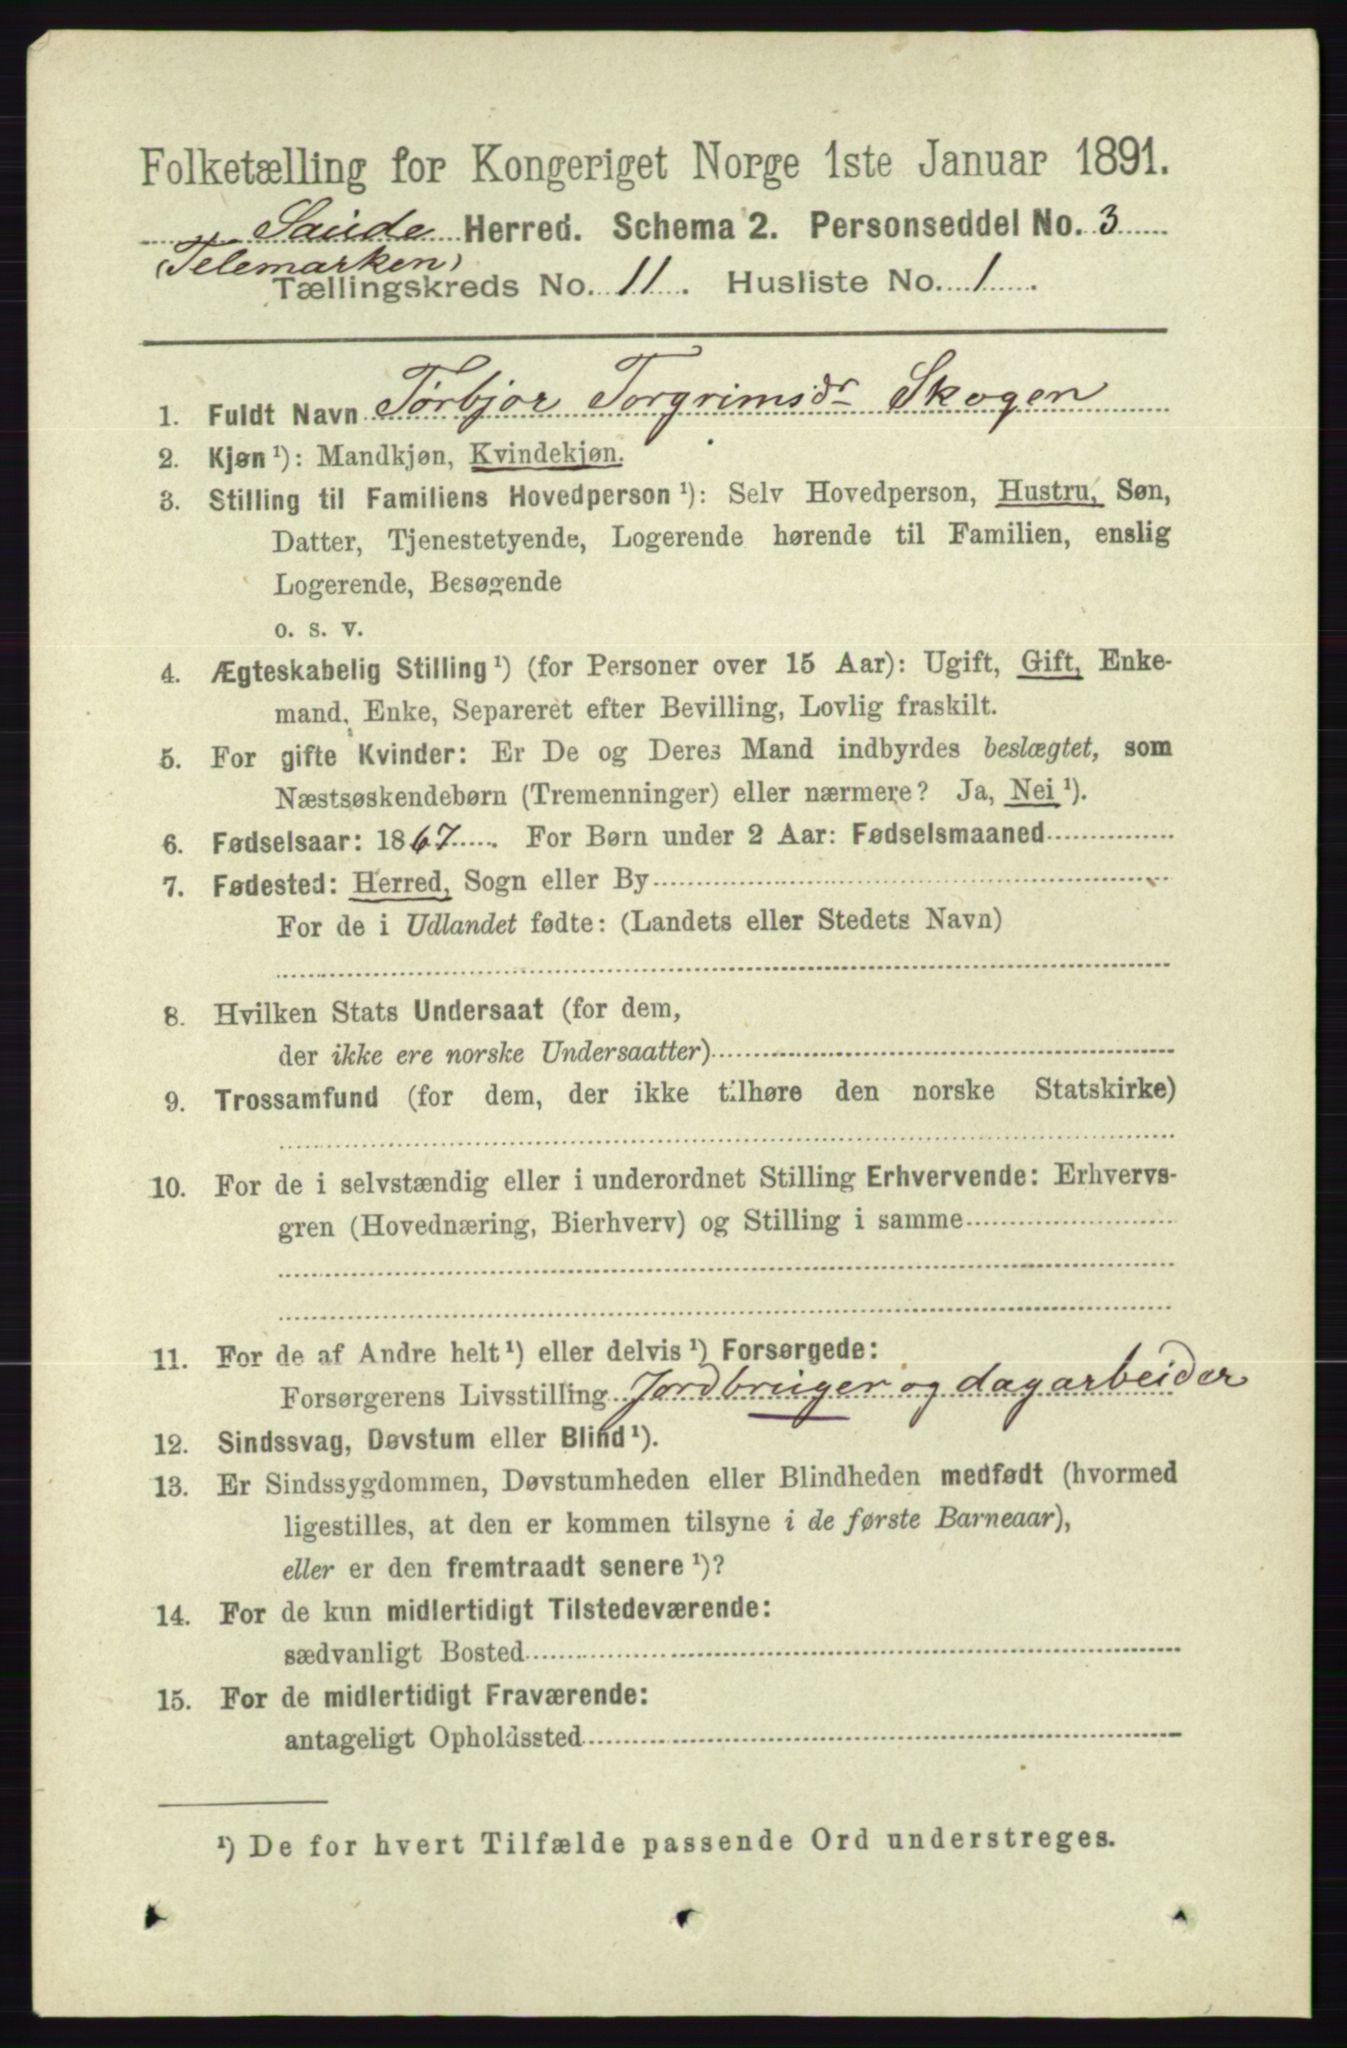 Folketælling for Kongeriget Norge 1ste Januar 1891.
Saude Herred. Schema 2. Personseddel No. 3
(Telemarken)
Tællingskreds No. 11. Husliste No. 1.
1. Fuldt Navn Torbjor Torgrimsdr Skogen
2. Kjøn ¹): Mandkjøn, Kvindekjøn.
3. Stilling til Familiens Hovedperson ¹): Selv Hovedperson, Hustru, Søn,
Datter, Tjenestetyende, Logerende hørende til Familien, enslig
Logerende, Besøgende
o. s. v.
4. Ægteskabelig Stilling ¹) (for Personer over 15 Aar): Ugift, Gift, Enke-
mand, Enke, Separeret efter Bevilling, Lovlig fraskilt.
5. For gifte Kvinder: Er De og Deres Mand indbyrdes beslægtet, som
Næstsøskendebørn (Tremenninger) eller nærmere? Ja, Nei ¹).
6. Fødselsaar: 1867. For Børn under 2 Aar: Fødselsmaaned
7. Fødested: Herred, Sogn eller By
For de i Udlandet fødte: (Landets eller Stedets Navn)
8. Hvilken Stats Undersaat (for dem,
der ikke ere norske Undersaatter)
9. Trossamfund (for dem, der ikke tilhøre den norske Statskirke)
10. For de i selvstændig eller i underordnet Stilling Erhvervende: Erhvervs-
gren (Hovednæring, Bierhverv) og Stilling i samme
11. For de af Andre helt ¹) eller delvis ¹) Forsørgede:
Forsørgerens Livsstilling Jordbruger og dagarbeider
12. Sindssvag, Døvstum eller Blind ¹).
13. Er Sindssygdommen, Døvstumheden eller Blindheden medfødt (hvormed
ligestilles, at den er kommen tilsyne i de første Barneaar),
eller er den fremtraadt senere ¹)?
14. For de kun midlertidigt Tilstedeværende:
sædvanligt Bosted
15. For de midlertidigt Fraværende:
antageligt Opholdssted
¹) De for hvert Tilfælde passende Ord understreges.